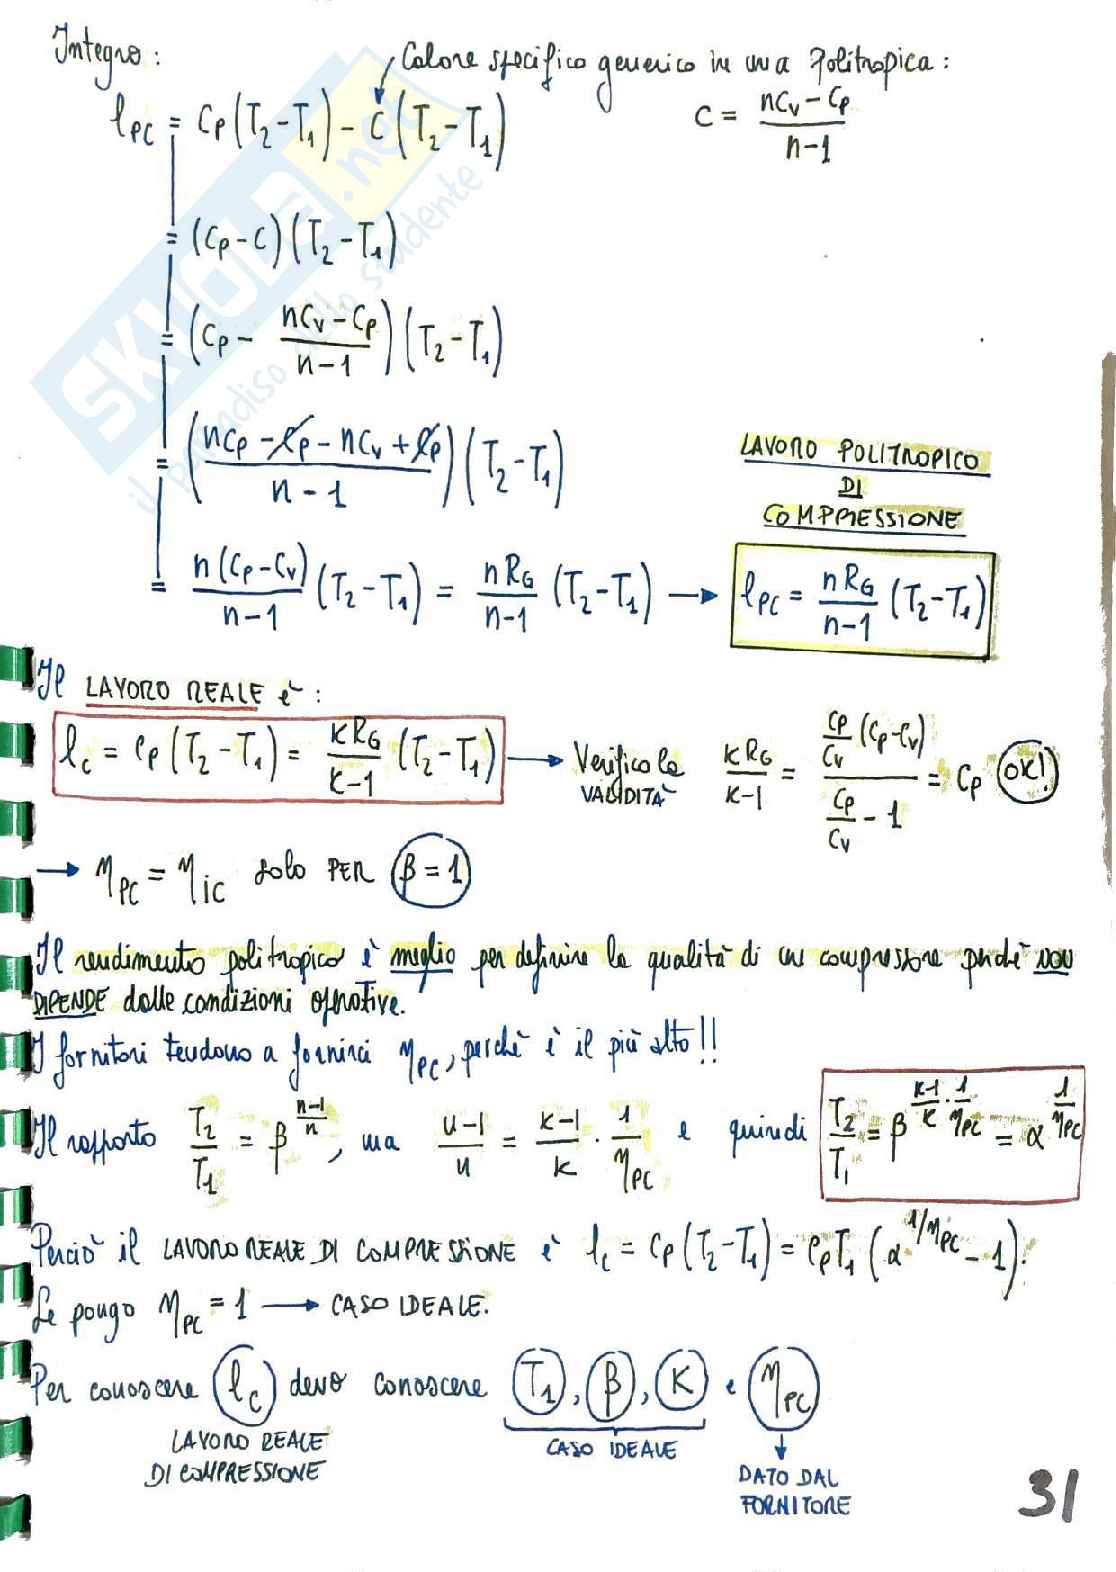 Integro:
Calore specifico generico in una Politropica:
l_PC = Cp(T2-T1) - C(T2-T1)
C = (nCv-Cp)/(n-1)
= (Cp-C)(T2-T1)
= (Cp - (nCv-Cp)/(n-1))(T2-T1)
= ((nCp-Cp-nCv+Cp)/(n-1))(T2-T1)
LAVORO POLITROPICO
DI
COMPRESSIONE
= n(Cp-Cv)/(n-1) (T2-T1) = nRG/(n-1) (T2-T1) → l_PC = nRG/(n-1) (T2-T1)
Il LAVORO REALE è:
l_c = Cp(T2-T1) = KRG/(K-1) (T2-T1) → Verifico la VALIDITÀ KRG/(K-1) = (Cp/Cv (Cp-Cv))/(Cp/Cv - 1) = Cp OK!
→ η_PC = η_ic solo PER β=1
Il rendimento politropico è meglio per definire la qualità di un compressore perchè NON
DIPENDE dalle condizioni operative.
I fornitori tendono a fornirci η_PC, perchè è il più alto!!
Il rapporto T2/T1 = β^((n-1)/n), ma (n-1)/n = (K-1)/K · 1/η_PC e quindi T2/T1 = β^((K-1)/K · 1/η_PC) = α^(1/η_PC)
Perciò il LAVORO REALE DI COMPRESSIONE è l_c = Cp(T2-T1) = CpT1(α^(1/η_PC) - 1).
Se pongo η_PC = 1 → CASO IDEALE.
Per conoscere l_c devo conoscere T1, β, K e η_PC
LAVORO REALE
DI COMPRESSIONE
CASO IDEALE
DATO DAL
FORNITORE
31
SKUOLA.net
il paradiso dello studente